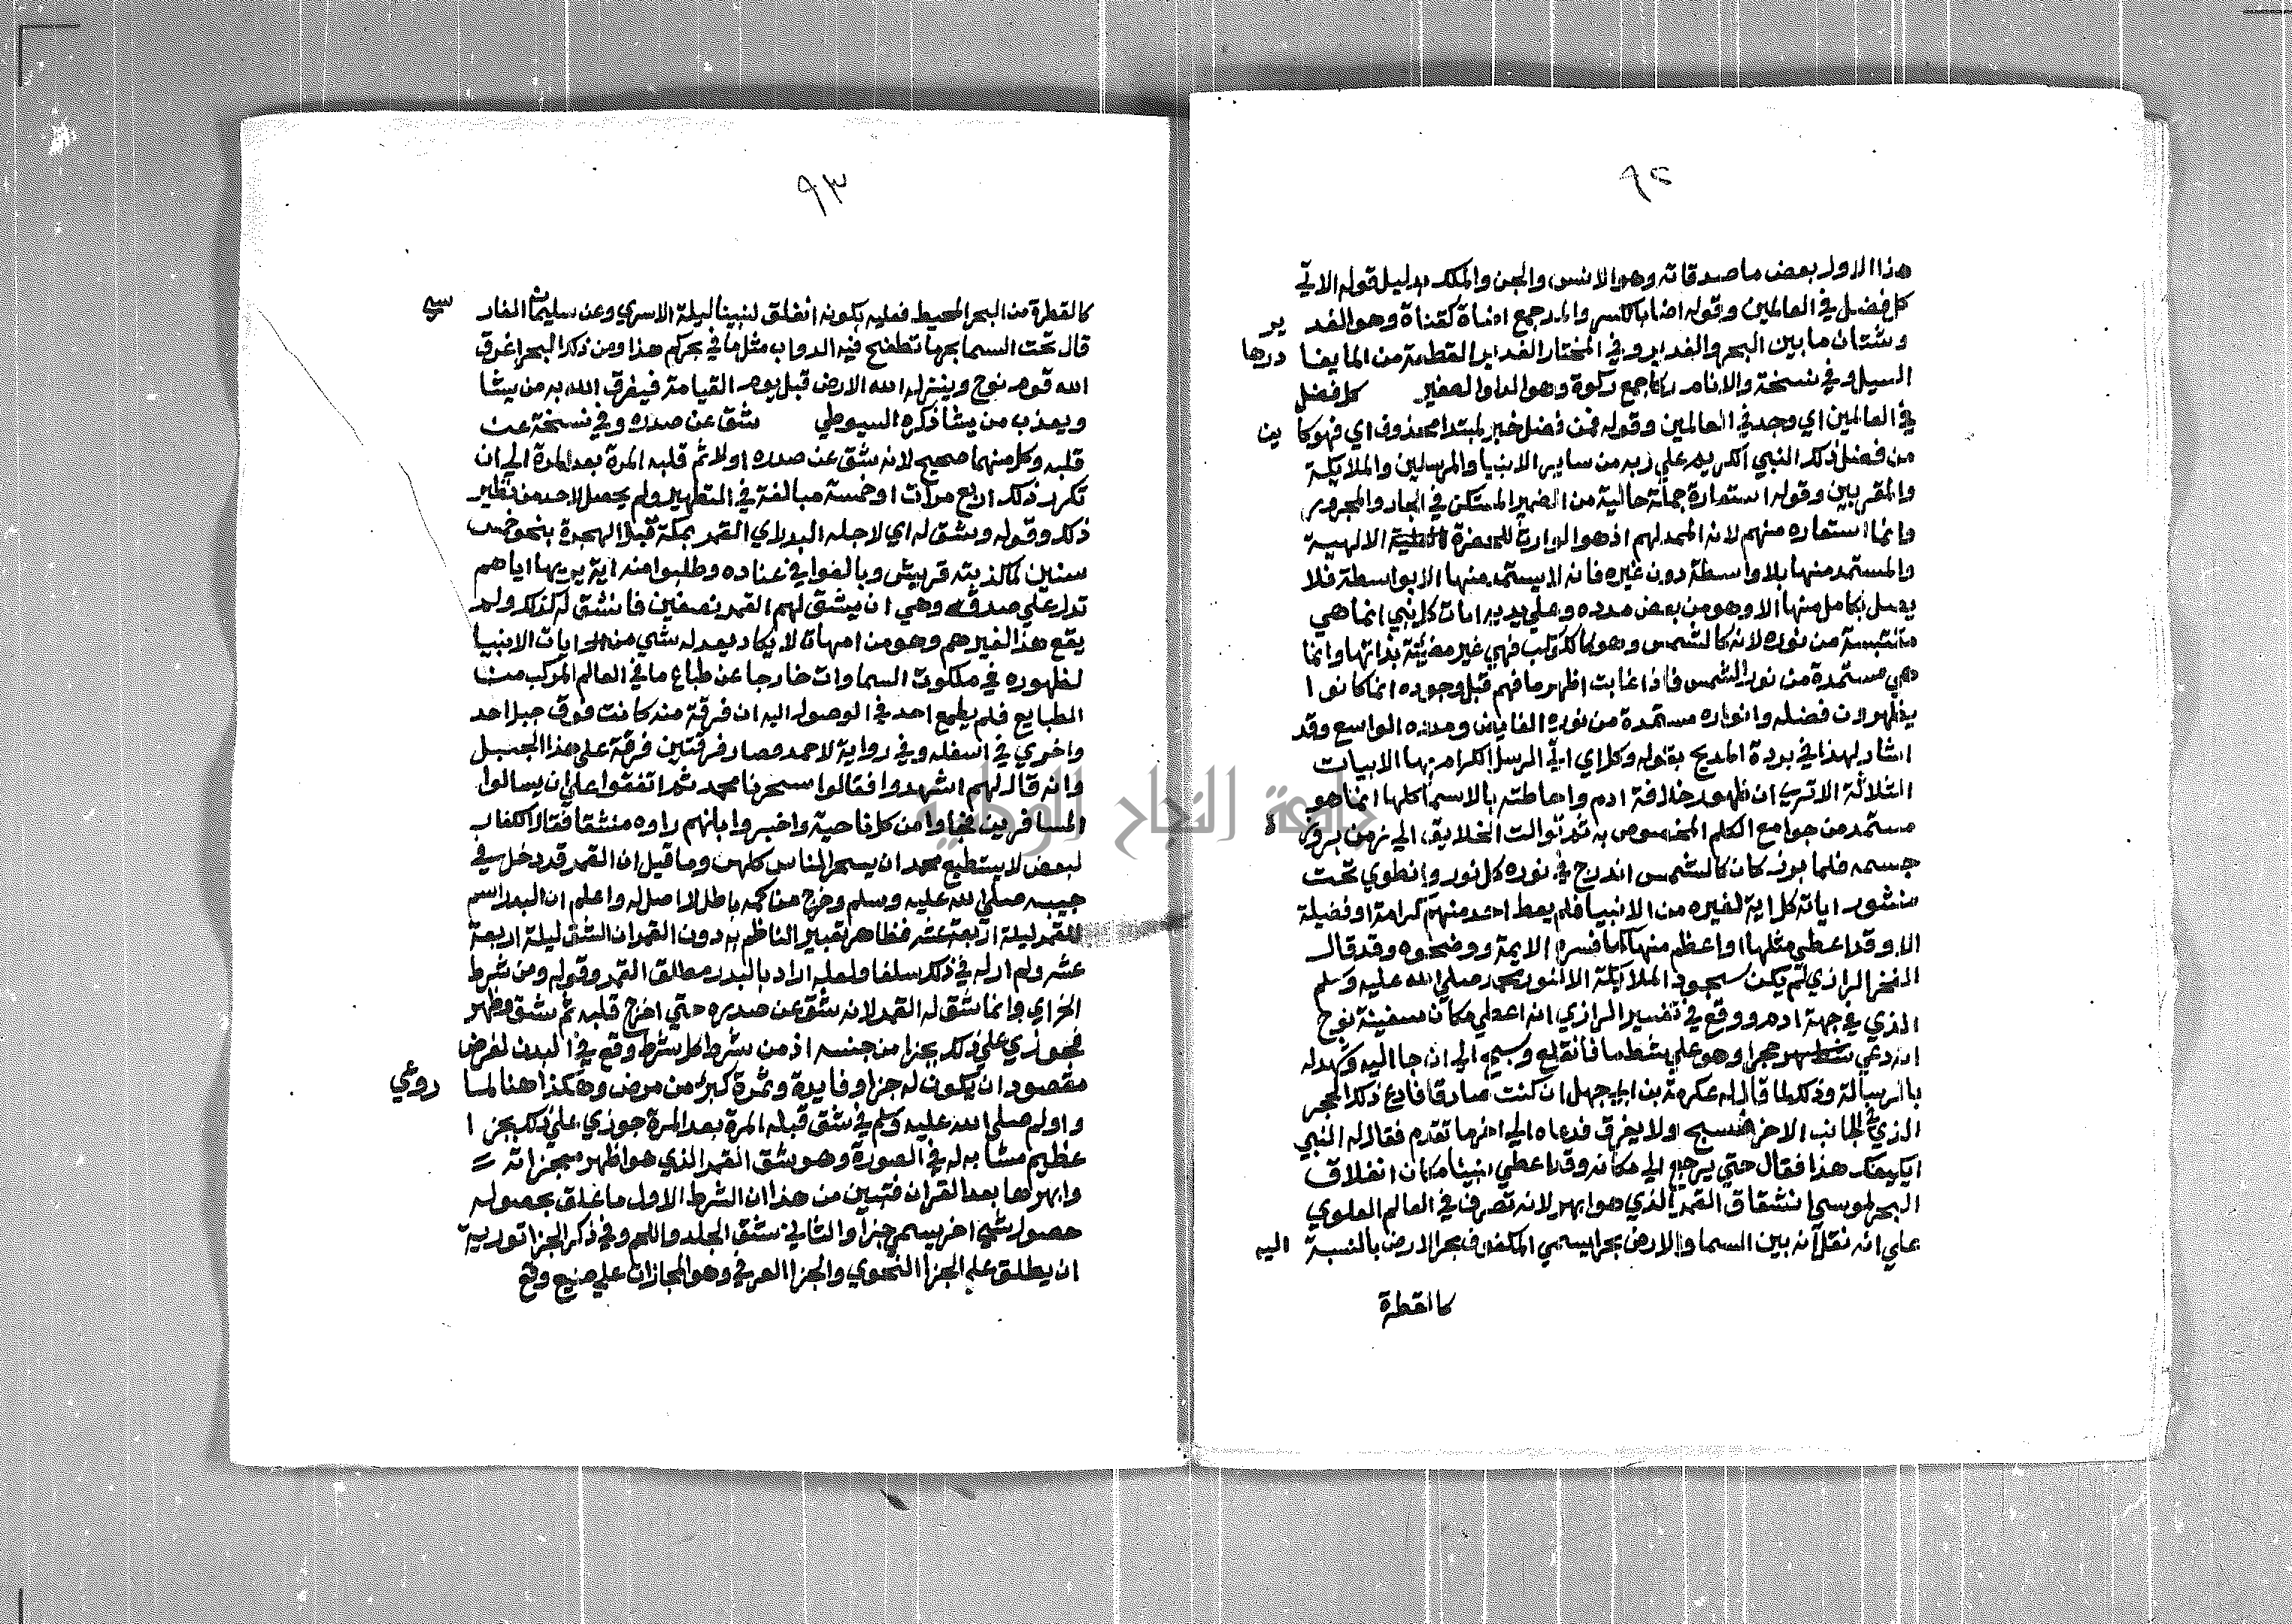 ٩٢
هذا الاول بعض ما صدقاته وهو الانس والجن والملك بدليل قوله الاتي
كل فضل في العالمين وقوله اضا بالكسر والمد جمع اضاة كقناة وهو الغد ير
وشتان ما بين البحر والغدير وفي المختار الغدير القطعة من الما يغا درها
السيل وفي نسخة والانام ركا جمع ركوة وهو الدلو الصغير كل فضل
في العالمين اي وجد في العالمين وقوله فمن فضل خبر لمبتدا محذوف اي فهو كا ين
من فضل ذلك النبي الكريم علي ربه من ساير الانبيا والمرسلين والملايكة
والمقربين وقوله استعارة جملة حالية من الضمير المستكن في الجار والمجرور
وانما استعاره منهم لانه الممد لهم اذ هو الوارث للحضرة الالهية
والمستمد منها بلا واسطة دون غيره فانه لا يستمد منها الا بواسطة فلا
يصل لكامل منها الا وهو من بعض مدده وعلي يديه ايات كل نبي انما هي
مقتبسة من نوره لانه كالشمس وهو كالكواكب فهي غير مضيئة بذاتها وانما
هي مستمدة من نور الشمس فاذا غابت اظهر ما فهم قبل وجوده انما كانوا
يظهرون فضله وانواره مستمدة من نوره الفايض ومدده الواسع وقد
اشار لهذا في بردة المديح بقوله وكل اي اتي الرسل الكرام بها الابيات
الثلاثة الا تري ان ظهور خلافة ادم واحاطته بالاسما كلها انما هو
مستمد من جوامع الكلم المخصوص به ثم توالت الخلايق الي زمن بروز
جسمه فلما برز كان كالشمس اندرج في نوره كل نور وانطوي تحت
منشور اياته كل اية لغيره من الانبيا فلم يعط احد منهم كرامة او فضيلة
الا وقد اعطي مثلها او اعظم منها كما فسره الايمة ووضحوه وقد قال
الفخر الرازي لم يكن سجود الملايكة الا لنور محمد صلي الله عليه وسلم
الذي في جبهة ادم ووقع في تفسير الرازي انه اعطي مكان سفينة نوح
انه دعي حجرا وهو علي شط ما فانقلع وسبح الي ان جا اليه وشهد له
بالرسالة وذلك لما قال له عكرمة بن ابي جهل ان كنت صادقا فادع ذلك الحجر
الذي في الجانب الاخر فليسبح ولا يغرق فدعاه الي اخر ما تقدم فقال له النبي
ايكيفك هذا فقال حتي يرجع الي مكانه وقد اعطي نبينا مكان انفلاق
البحر لموسي انشقاق القمر الذي هو ابهر لانه تصرف في العالم العلوي
علي انه نقل انه بين السما والارض بحرا يسمي المكفوف بحر الارض بالنسبة اليه
كالقطرة
٩٣
كالقطرة من البحر المحيط فعليه يكون انفلق لنبينا ليلة الاسري وعن سليمان الفار سي
قال تحت السما بحر ما تطفح فيه الدواب مثل ما في بحركم هذا ومن ذلك البحر اغرق
الله قوم نوح وينزله الله الارض قبل يوم القيامة فيغرق الله به من يشا
ويعذب من يشا ذكره السيوطي شق عن صدره وفي نسخة عن
قلبه وكل منهما صحيح لانه شق عن صدره اولا ثم قلبه المرة بعد المرة الي ان
تكرر ذلك اربع مرات او خمسة مبالغة في التطهير ولم يحصل لاحد من نظير
ذلك وقوله وشق له اي لاجله البدر اي القمر بمكة قبل الهجرة بنحو خمس
سنين لما كذبته قريش وبالغوا في عناده وطلبوا منه اية يريها اياهم
تدل علي صدقه وهي ان يشق لهم القمر نصفين فانشق له كذلك ولم
يقع هذا لغيرهم وهو من امهات لا يكاد يعدله شي من ايات الانبيا
لظهوره في ملكوت السماوات خارجا عن طباع ما في العالم المركب من
الطبايع فلم يطمع احد في الوصول اليه ان فرقة منه كانت فوق جبل احد
واخري في اسفله وفي رواية لاحمد فصار فرقتين فرقة علي هذا الجبل
وانه قال لهم اشهدوا فقالوا سحرنا محمد ثم اتفقوا علي ان يسالوا
المسافرين فجاوا من كل ناحية واخبروا بانهم راوه منشقا فقال الكفار
لبعض لا يستطيع محمد ان يسحر الناس كلهم وما قيل ان القمر قد دخل في
جيبه صلي الله عليه وسلم وخرج من كمه باطل لا اصل له واعلم ان البدر اسم
للقمر ليلة اربعة عشر فظاهر تعبير الناظم به دون القمر ان الشق ليلة اربعة
عشر ولم ار له في ذلك سلفا ولعله اراد بالبدر مطلق القمر وقوله ومن شرط
الخ اي وانما شق له القمر لانه شق عن صدره حتي اخرج قلبه ثم شق وطهر
فجوزي علي ذلك بجزا من جنسه اذ من شرط كل شرط وقع في البدن لغرض
مقصود ان يكون له جزا وفايدة وثمرة كبرء من مرض وهكذا هنا لما روعي
واولم صلي الله عليه وسلم في شق قبله المرة بعد المرة جوزي علي ذلك بجزا
عظيم مشابه له في الصورة وهو شق القمر الذي هو اظهر معجزاته
وابهرها بعد القران فتبين من هذا ان الشرط الاول ما علق بحصوله
حصول شي اخر يسمي جزا والثاني شق الجلد واللحم وفي ذكر الجزا تورية
ان يطلق علي الجزا النحوي والجزا العرفي وهو المجازات علي صنيع وقع
جامعة النجاح الوطنية